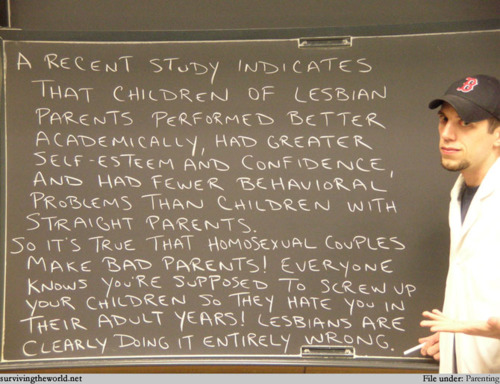 A RECENT STUDY INDICATES
THAT CHILDREN OF LESBIAN
PARENTS PERFORMED BETTER
ACADEMICALLY, HAD GREATER
SELF-ESTEEM AND CONFIDENCE,
AND HAD FEWER BEHAVIORAL
PROBLEMS THAN CHILDREN WITH
STRAIGHT PARENTS.
SO IT'S TRUE THAT HOMOSEXUAL COUPLES
MAKE BAD PARENTS! EVERYONE
KNOWS YOU'RE SUPPOSED TO SCREW UP
YOUR CHILDREN SO THEY HATE YOU IN
THEIR ADULT YEARS! LESBIANS ARE
CLEARLY DOING IT ENTIRELY WRONG.
B
survivingtheworld.net File under: Parenting